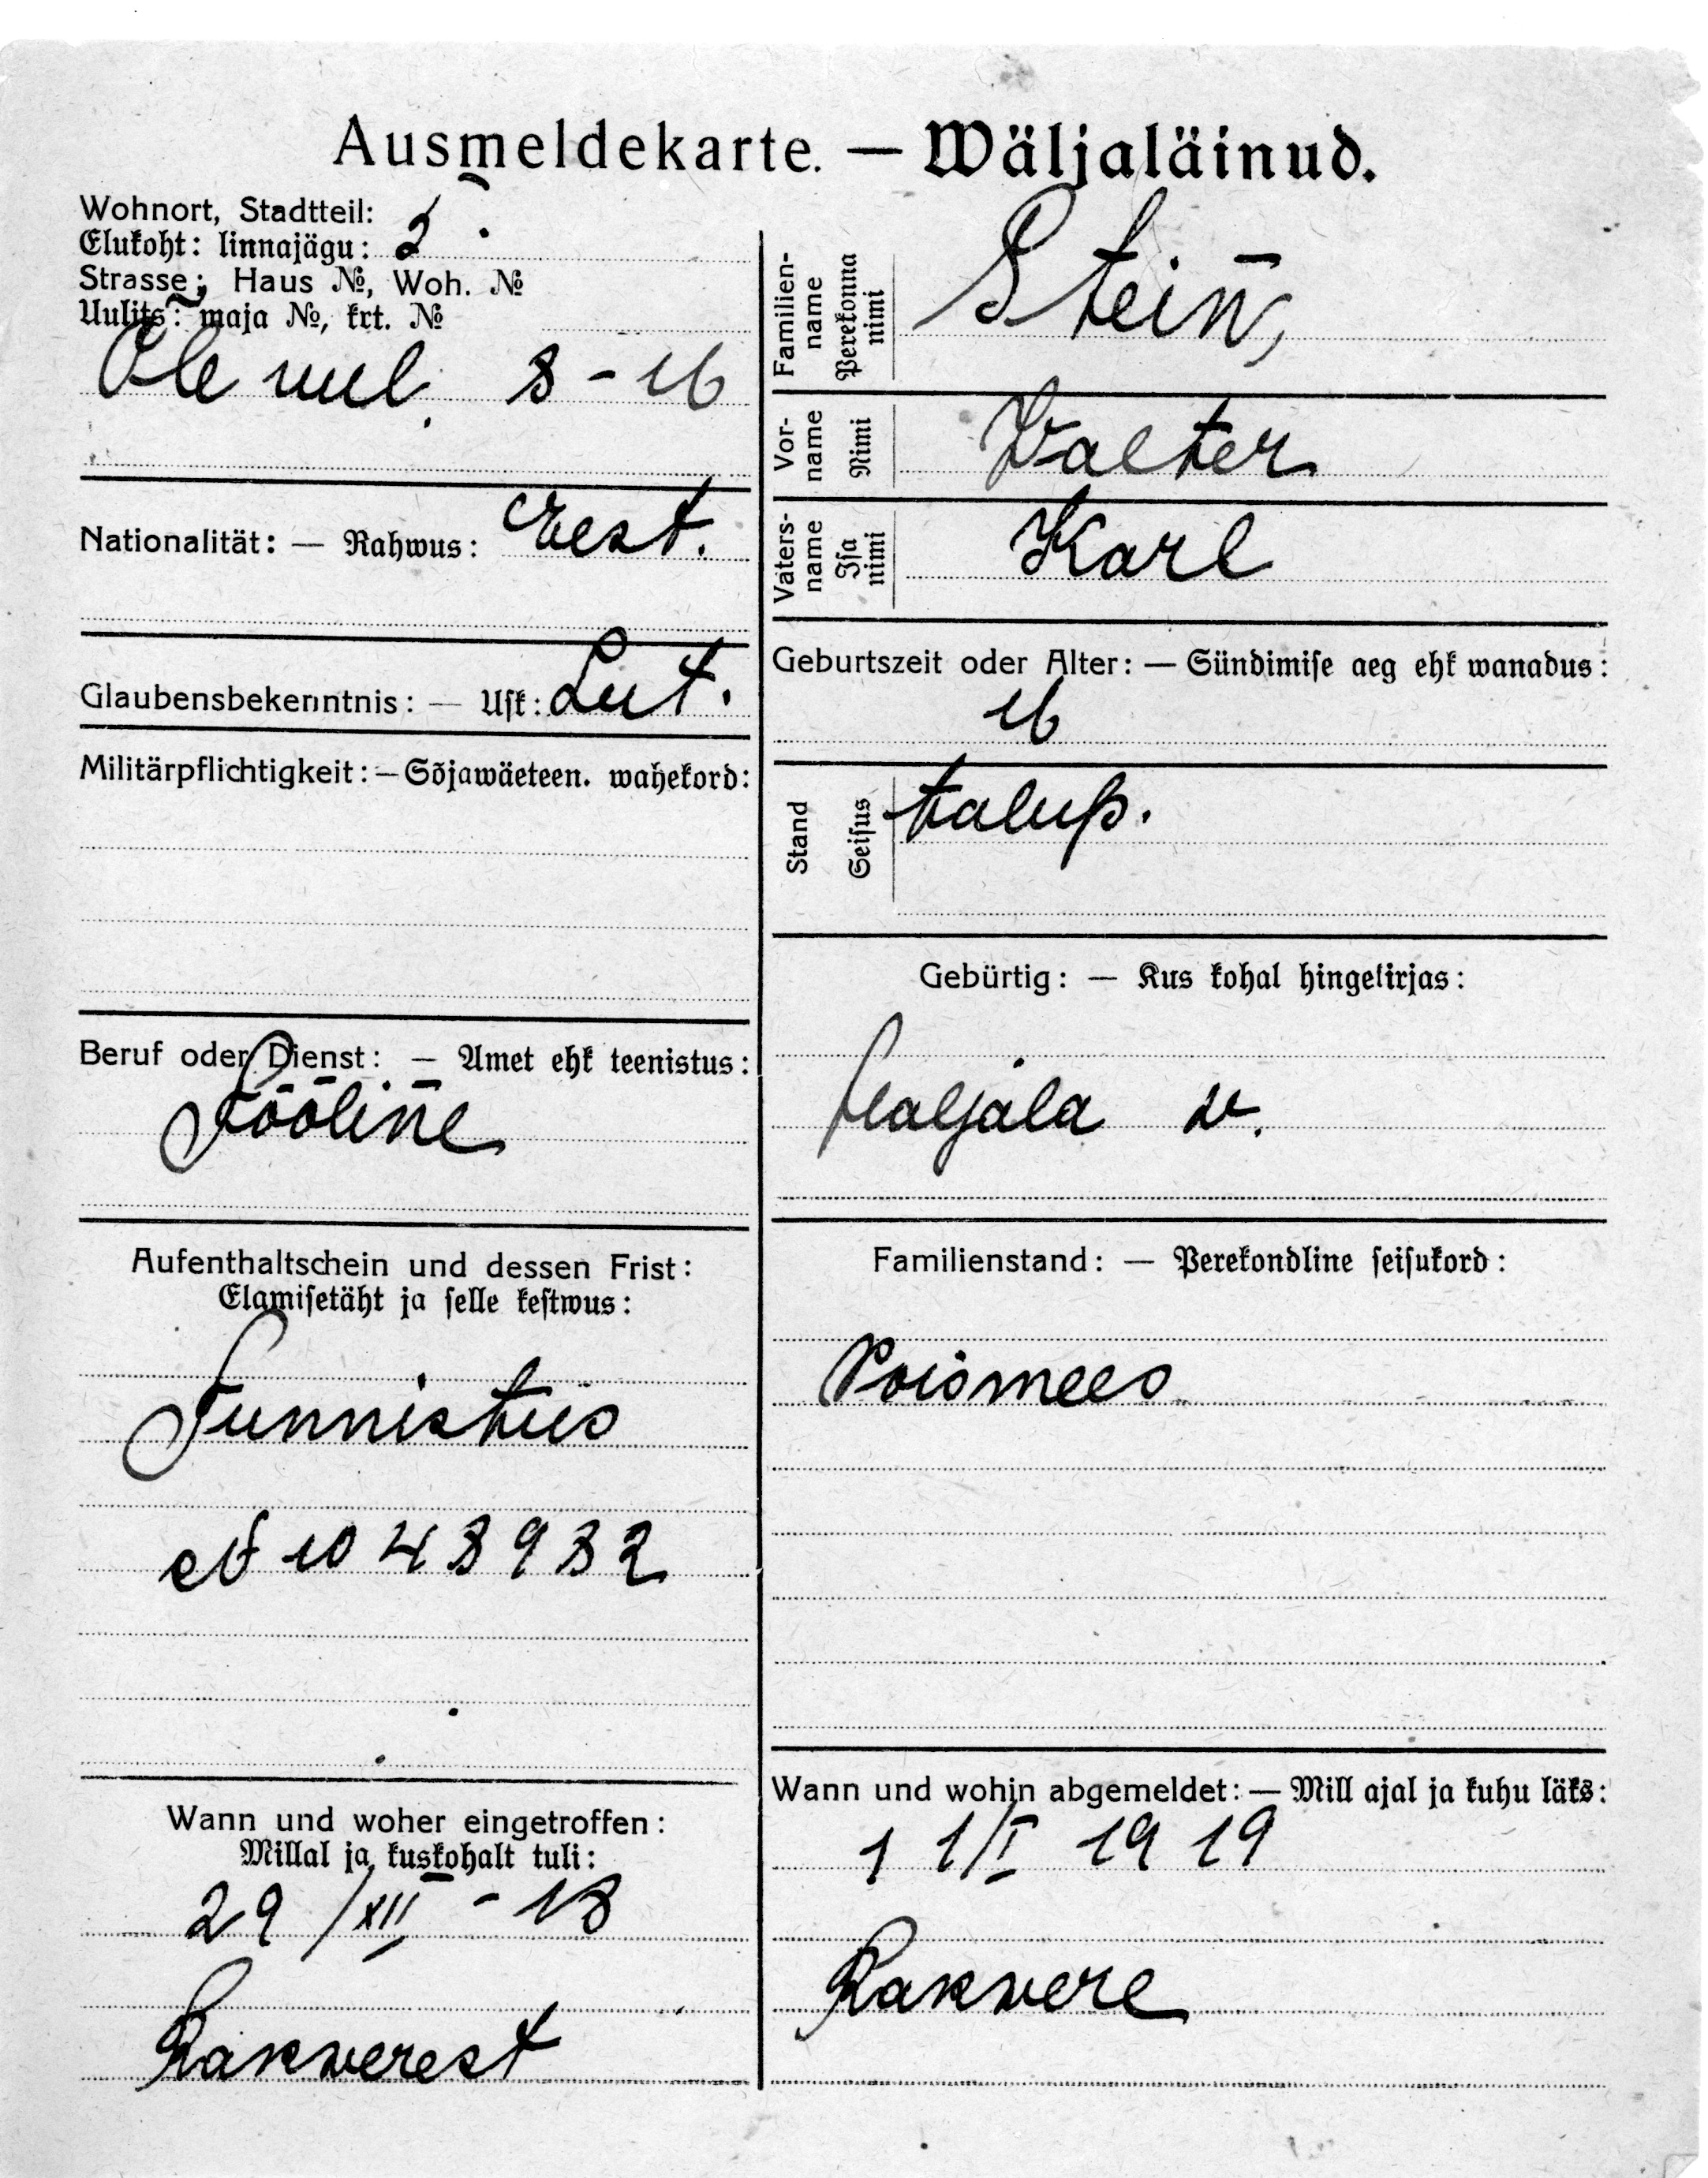 Ausmeldekarte. — Wäljaläinud.
Wohnort, Stadtteil:
Elukoht: linnajägu: 2.
Strasse; Haus №, Woh. №
Uulits: maja №, krt. №
8-16
Nationalität: — Rahwus: Eest.
Glaubensbekenntnis: — Usk: Lut.
Militärpflichtigkeit: — Sõjawäeteen. wahekord:
Beruf oder Dienst: — Amet ehk teenistus:
Tööline
Aufenthaltschein und dessen Frist:
Elamisetäht ja selle kestwus:
Tunnistus
№ 1048982
Wann und woher eingetroffen:
Millal ja kuskohalt tuli:
29/XII - 18
Rakwerest
Familien-
name
Perekonna
nimi
Stein,
Vor-
name
Nimi
Walter
Vaters-
name
Isa
nimi
Karl
Geburtszeit oder Alter: — Sündimise aeg ehk wanadus:
16
Stand
Seisus
talup.
Gebürtig: — Kus kohal hingekirjas:
Haljala w.
Familienstand: — Perekondline seisukord:
Poismees
Wann und wohin abgemeldet: — Mill ajal ja kuhu läks:
11/I 1919
Rakwere